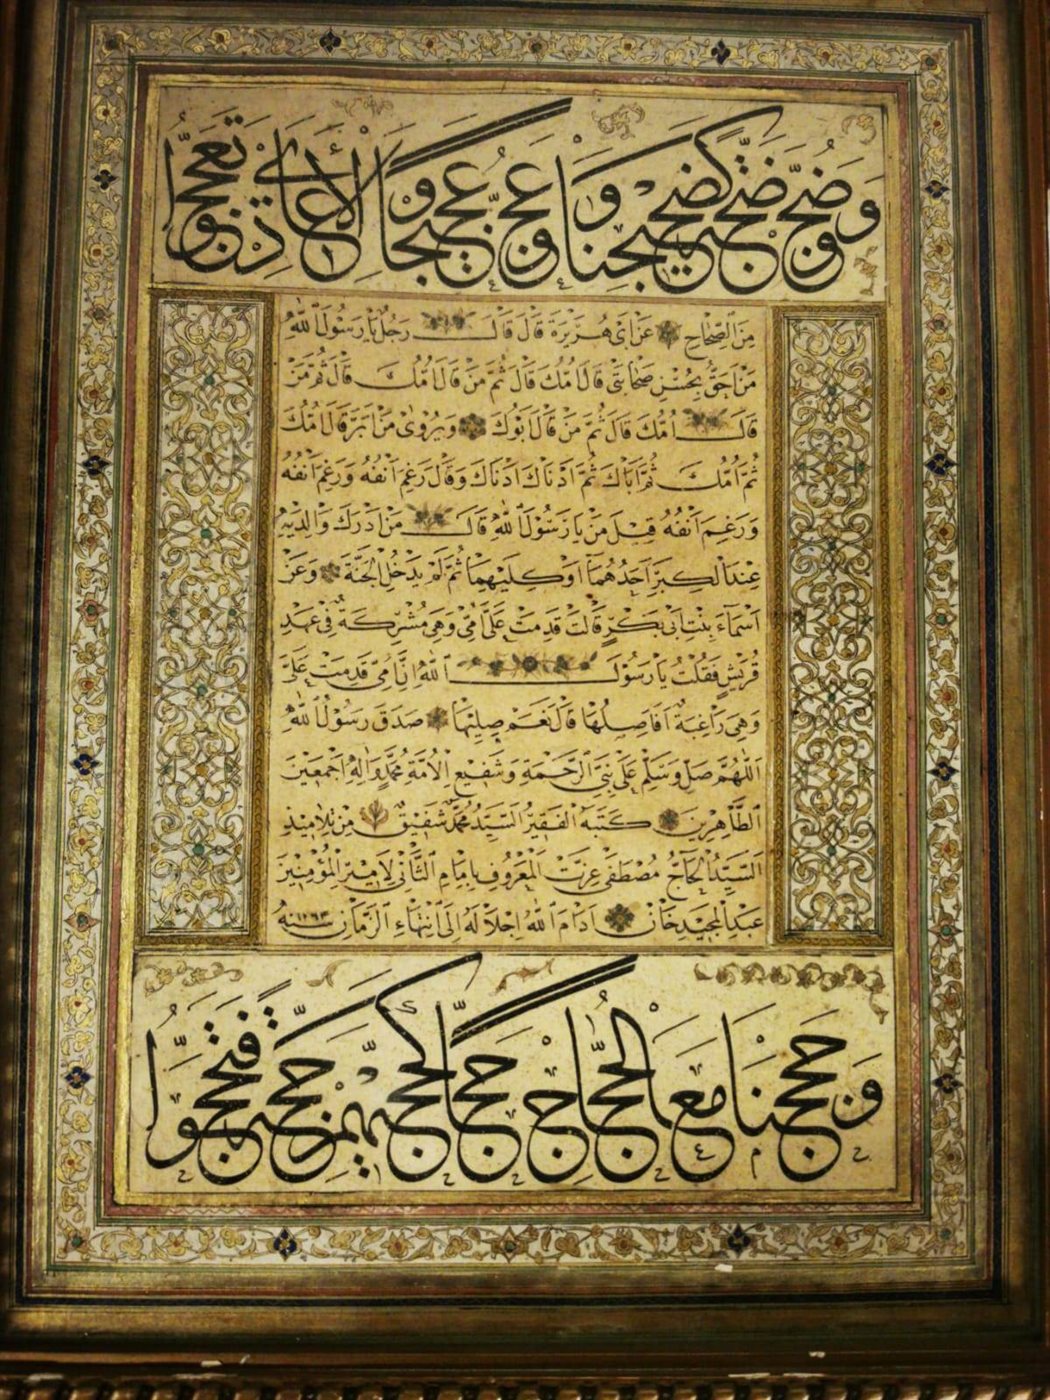 من الصحاح عن ابى هريرة قال قال رجل يا رسول الله
من احق بحسن صحابتى قال امك قال ثم من قال امك قال ثم من
قال امك قال ثم من قال ابوك ويروى من ابر قال امك
ثم امك ثم اباك ثم ادناك ادناك وقال رغم انفه ورغم انفه
ورغم انفه قيل من يا رسول الله قال من ادرك والديه
عند الكبر احدهما او كليهما ثم لم يدخل الجنة وعن
اسماء بنت ابى بكر قالت قدمت على امى وهى مشركة فى عهد
قريش فقلت يا رسول الله ان امى قدمت على
وهى راغبة افاصلها قال نعم صليها صدق رسول الله
اللهم صل وسلم على نبى الرحمة وشفيع الامة محمد واله اجمعين
الطاهرين كتبه الفقير السيد محمد شفيق من تلاميذ
السيد الحاج مصطفى عزت المعروف بامام الثانى لامير المؤمنين
عبد المجيد خان ادام الله اجلاله الى انتهاء الزمان سنه ١٢٦٣
وحججنا مع الحجاج حجا كحجهم